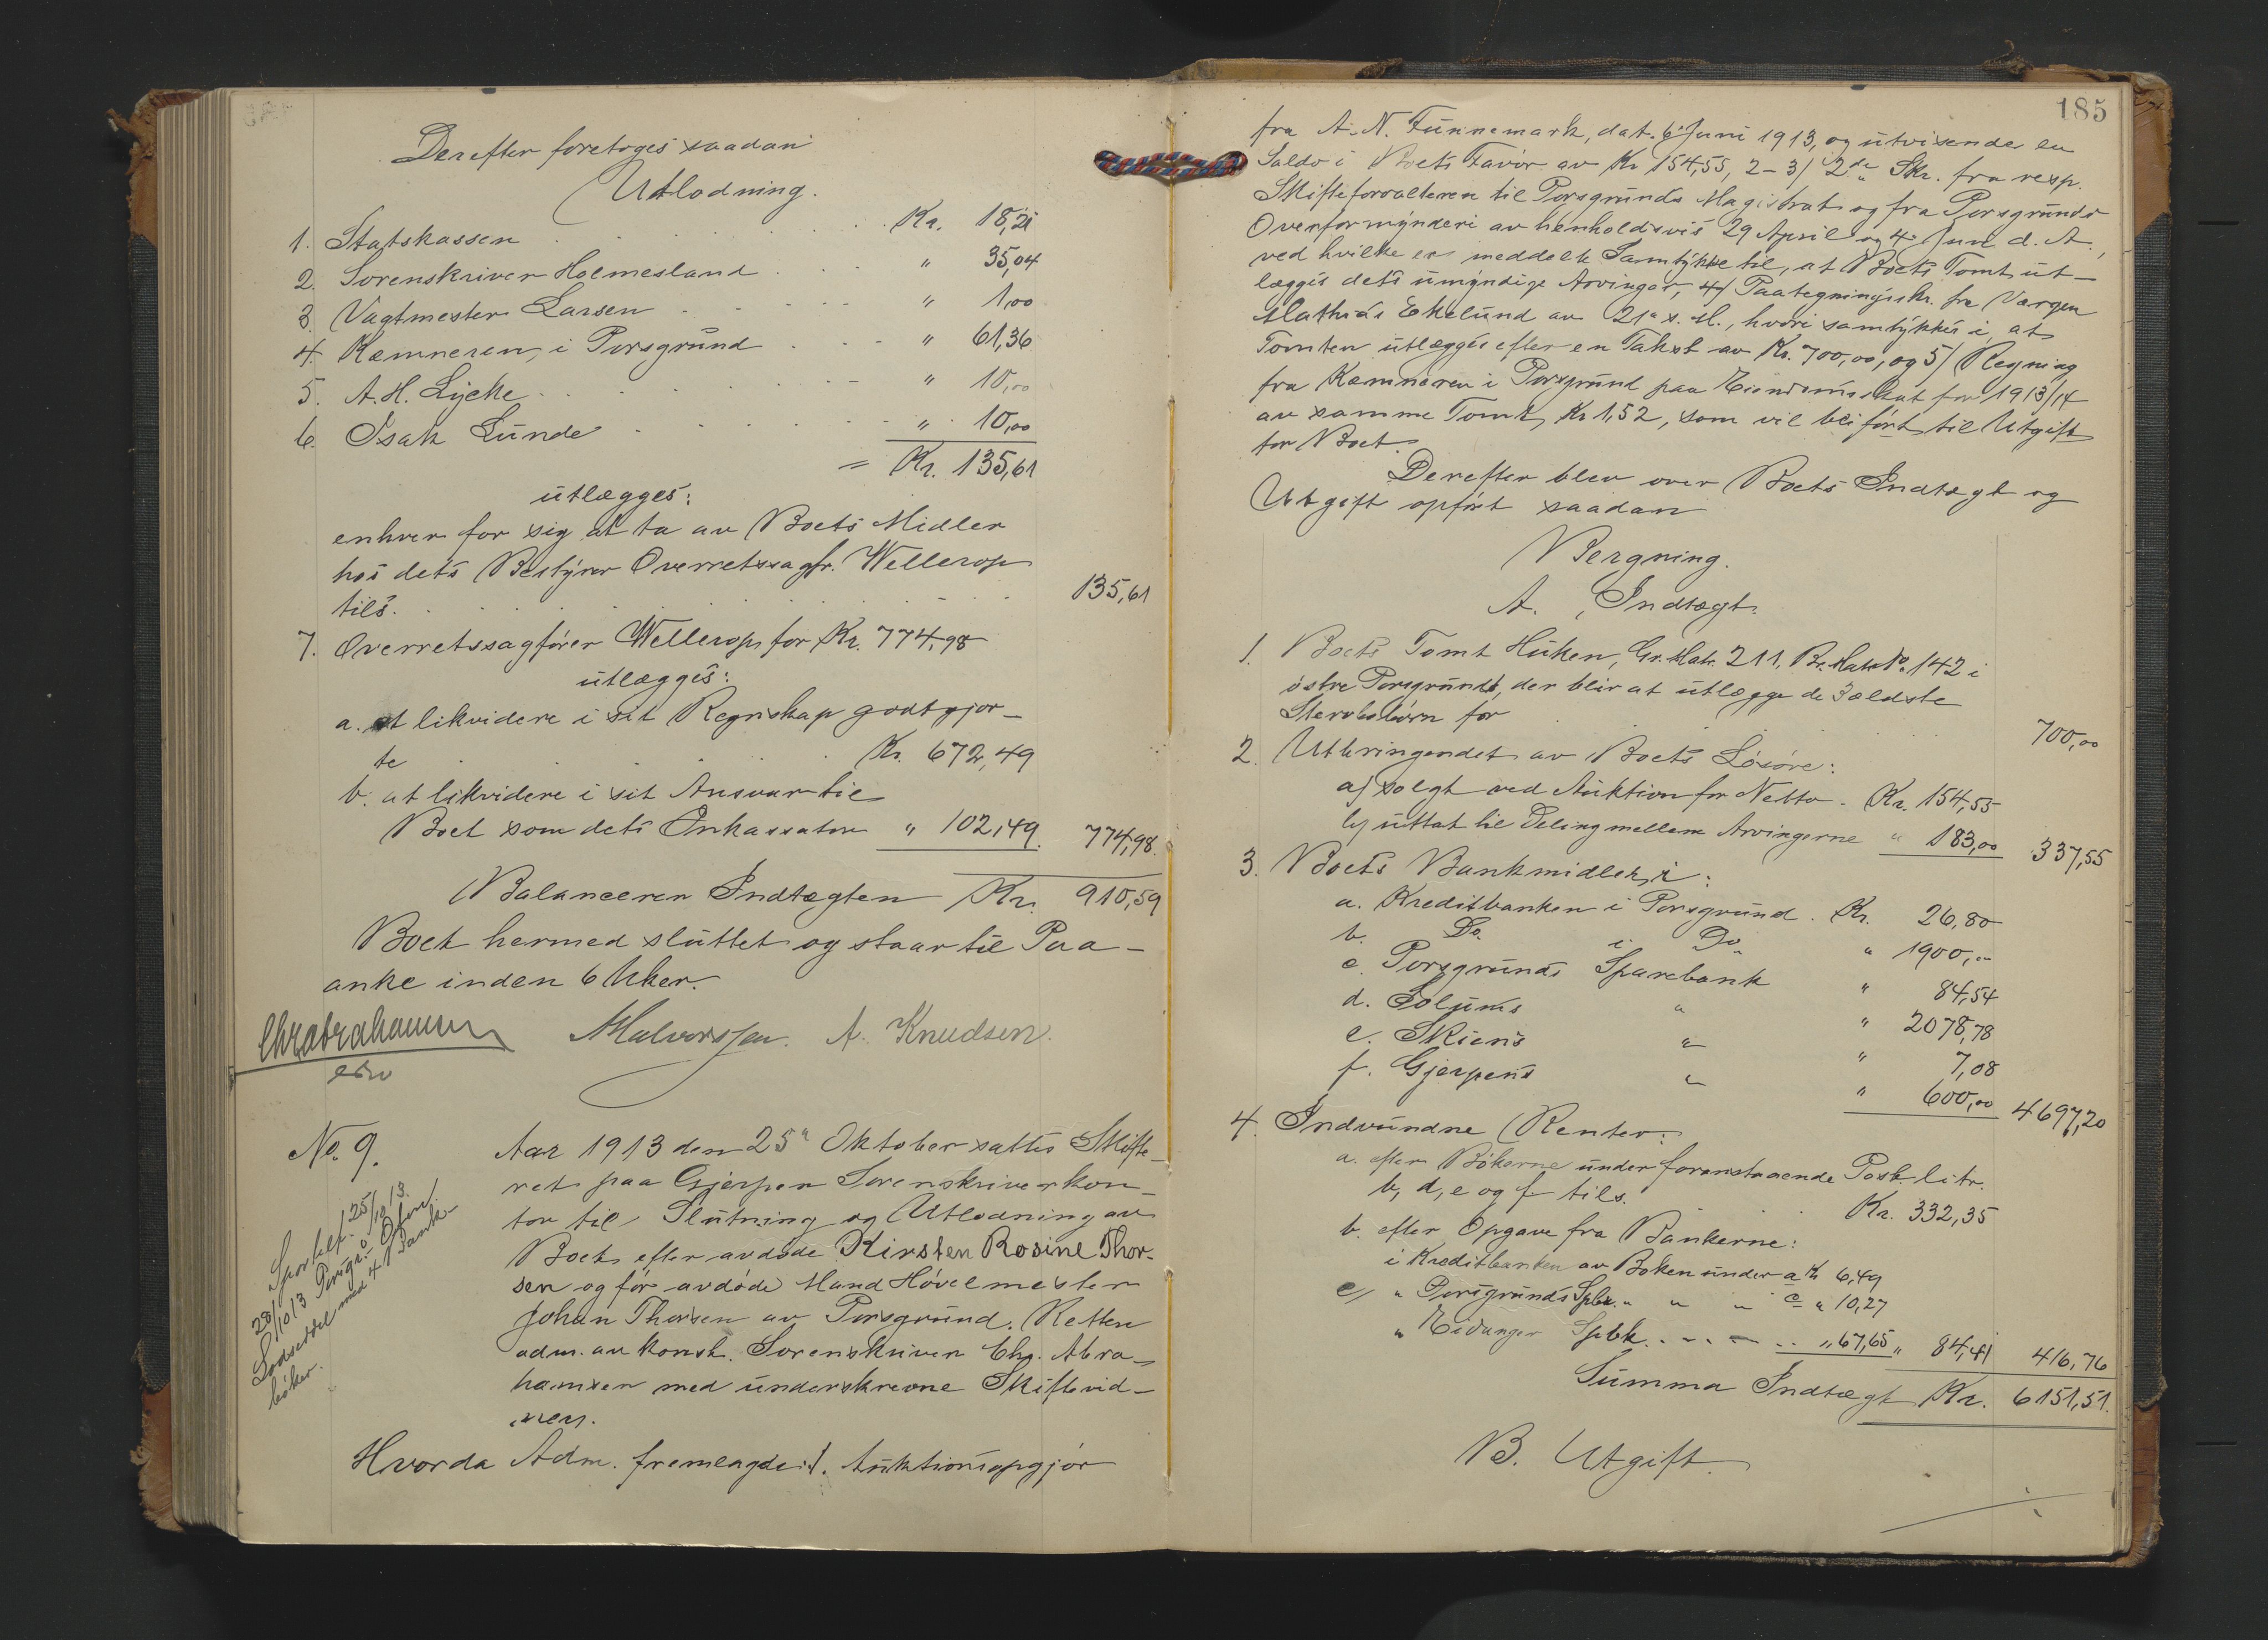 Derefter foretoges saadan
Utlodning.
1. Statskassen Kr. 18,21
2. Sorenskriver Holmesland " 35,04
3. Vagtmester Larsen " 1,00
4. Kæmneren i Porsgrund " 61,36
5. A. H. Lycke " 10,00
6. Isak Lunde " 10,00
= Kr. 135,61
utlægges:
enhver for sig at ta av Boets Midler
hos dets Bestyrer Overretssagfr. Wellerop
tils. 135,61
7. Overretssagfører Wellerop for Kr. 774,98
utlægges:
a. at likvidere i sit Regnskap godtgjor-
te Kr. 672,49
b. at likvidere i sit Ansvar til
Boet som dets Inkassator " 102,49. 774,98.
Balancerer Indtægten Kr. 910,59
Boet hermed sluttet og staar til Paa-
anke inden 6 Uker.
Chr Abrahamsen Halvorsen. A. Knudsen.
No. 9.
Aar 1913 den 25' Oktober sattes Skifte-
ret paa Gjerpen Sorenskriverkon-
tor til Slutning og Utlodning av
Boet efter avdøde Kirsten Rosine Thor-
sen og før avdøde Mand Høvelmester
Johan Thorsen av Porsgrund. Retten
adm. av konst. Sorenskriver Chr. Abra-
hamsen med underskrevne Skiftevid-
ner.
25/10 13.
28/10 13 Porsgr.
Lodseddel med 4 Bank-
bøker.
Hvorda Adm. fremlagde: 1. Auktionsopgjør
185
fra A. N. Funnemark, dat. 6' Juni 1913, og utvisende en
Saldo i Boets Favør av Kr 154,55, 2-3/ 2de Skr. fra resp.
Skifteforvalteren til Porsgrunds Magistrat og fra Porsgrunds
Overformynderi av henholdsvis 29 April og 4' Juni d. A.,
ved hvilke er meddelt Samtykke til, at Boets Tomt ut-
lægges dets umyndige Arvinger, 4/ Paategningsskr. fra Værgen
Mathias Ekelund av 21' s. M., hvori samtykkes i, at
Tomten utlægges efter en Takst av Kr. 700,00, og 5/ Regning
fra Kæmneren i Porsgrund paa Eiendomsskat for 1913/14
av samme Tomt, Kr 1,52, som vil bli ført til Utgift
for Boet.
Derefter blev over Boets Indtægt og
Utgift opført saadan
Beregning.
A. Indtægt.
1. Boets Tomt Huken, Gr. Matr. 211, Br. Matr. No. 142 i
østre Porsgrund, der blir at utlægge de 3 ældste
Stervbobørn for 700,00
2. Utbringendet av Boets Løsøre:
a) solgt ved Auktion for Netto. Kr. 154,55
b) uttat til Deling mellem Arvingerne " 183,00 337,55
3. Boets Bankmidler, i:
a. Kreditbanken i Porsgrund. Kr. 26,80
b. Do. i Do. " 1900,00
c. Porsgrunds Sparebank " 84,54
d. Solums " " 2078,78
e. Skiens " " 7,08
f. Gjerpens " " 600,00 4697,20
4. Indvundne Renter:
a. efter Bøkerne under foranstaaende Post litr.
b, d, e og f tils. Kr. 332,35
b. efter Opgave fra Bankerne:
i Kreditbanken av Boken under a Kr 6,49
" Porsgrunds Spbk. " " " c " 10,27
" Eidanger Spbk. " 67,65 " 84,41 416,76
Summa Indtægt Kr. 6151,51.
B. Utgift.